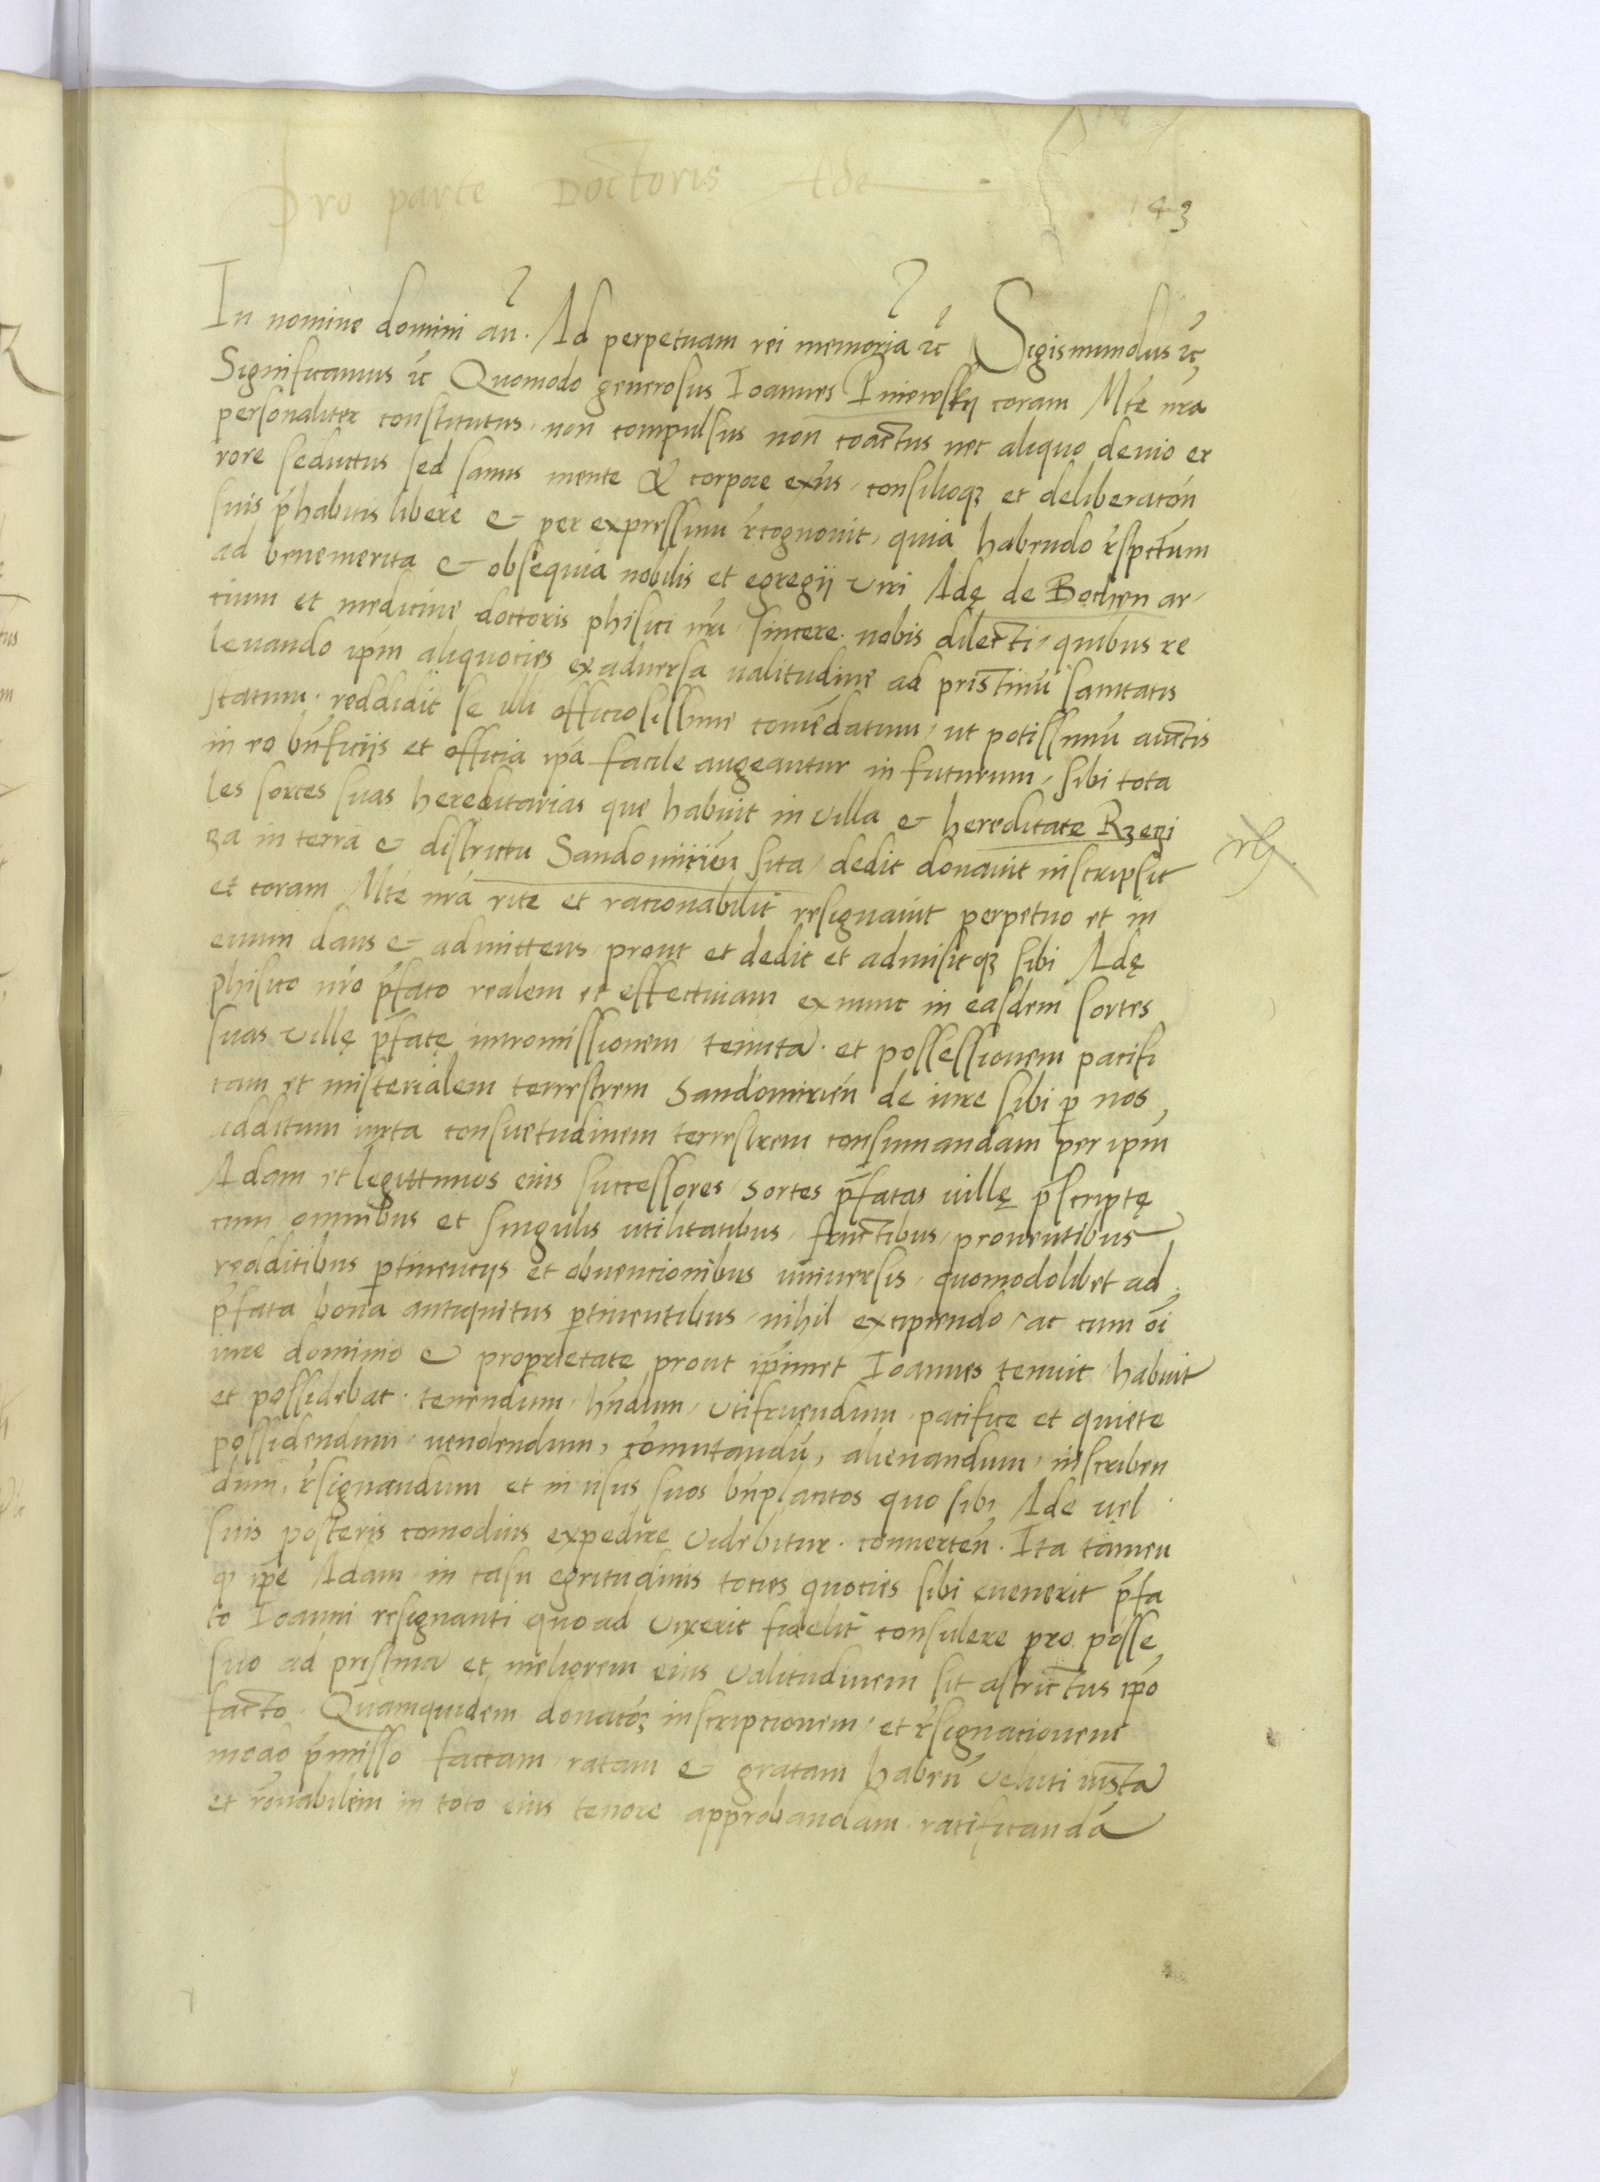 Pro parte Doctoris Ade
143
In nomine domini am̄. Ad perpetuam rei memoriā ꝛc̄ Sigismundus ꝛc̄
Significamus ꝛc̄ Quomodo generosus Ioannes Pniewskij coram Mt̄e nr̄a
personaliter constitutus, non compulsus non coactus nec aliquo deuio er
rore seductus sed sanus mente & corpore exn̄s, consilioqꝫ et deliberatōn
suis p̄habitis libere & per expressum r̄cognouit, quia habendo r̄spectum
ad benemerita & obsequia nobilis et egregij viri Adę de Bochen ar,
cium et medicine doctoris phisici nr̄i sincere nobis dilecti, quibus re
leuando ip̄m aliquoties ex aduersa ualitudine ad pristinū sanitatis
statum, reddidit se illi officiosissime com̄endatum, ut potissimū auctis
in eo bn̄ficijs et officia ip̄a facile augeantur in futurum, sibi tota
les sortes suas hereditarias que habuit in villa & hereditate Rzeczi
za in terra & districtu Sandomirien̄ sita, dedit donauit inscripsit
et coram Mt̄e nr̄a rite et racionabilit̄ resignauit perpetuo et in
euum dans & admittens prout et dedit et admisitqꝫ sibi Adę
phisico nr̄o p̄fato realem et effectiuam ex nunc in easdem sortes
suas villę p̄fatę intromissionem, tenutā et possessionem pacifi
cam et misterialem terrestrem Sandomirien̄ de iure sibi ꝑ nos
additum iuxta consuetudinem terrestrem consumandam per ip̄m
Adam et legittimos eius successores, sortes p̄fatas uillę p̄scriptę
cum omnibus et singulis utilitatibus, fructibus, prouentibus
redditibus ꝑtinencijs et obuencionibus uniuersis, quomodolibet ad
p̄fata bona antiquitus ꝑtinentibus, nihil excipiendo, ac cum om̄i
iure dominio & proprietate prout ip̄imet Ioannes tenuit habuit
et possidebat, tenendum, hn̄dum, utifruendum, pacifice et quiete
possidendum, uendendum, com̄utandū, alienandum, inscriben
dum, r̄signandum et in usus suos bn̄placitos quo sibi Ade uel
suis posteris comodius expedire videbitur, conuerten̄. Ita tamen
ꝙ ip̄e Adam in casu egritudinis toties quoties sibi euenerit p̄fa
to Ioanni resignanti quo ad vixerit fidelit̄ consulere pro posse
suo ad pristinā et meliorem eius valitudinem sit astrictus ip̄o
facto. Quamquidem donacōꝫ inscripcionem, et r̄signacionem
modo p̄misso factam, ratam & gratam haben̄ veluti iustā
et rōnabilem in toto eius tenore approbandam ratificandā